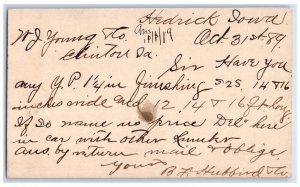 Hedrick Iowa
W J Young & Co. Oct. 31st 89.
Clinton Ia.
Sir Have you
any Y.P. 1¼ in finishing S2S. 14 & 16
inches wide and 12. 14 & 16 ft long
If so name us price Del'd here
in car with other Lumber
ans. by return mail & oblige.
Yours